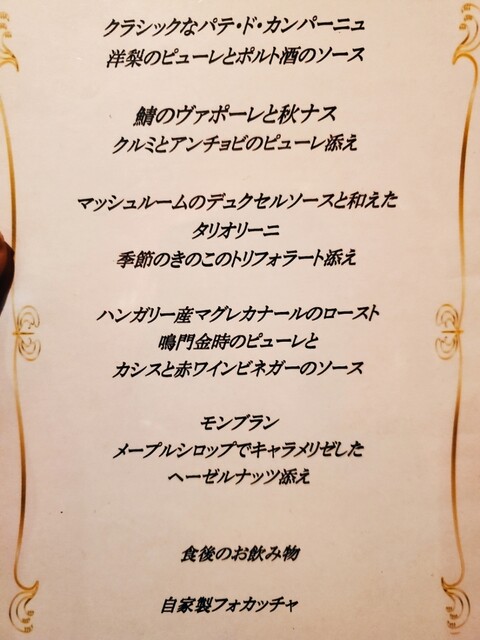 クラシックなパテ・ド・カンパーニュ
洋梨のピューレとポルト酒のソース
鯖のヴァポーレと秋ナス
クルミとアンチョビのピューレ添え
マッシュルームのデュクセルソースと和えた
タリオリーニ
季節のきのこのトリフォラート添え
ハンガリー産マグレカナールのロースト
鳴門金時のピューレと
カシスと赤ワインビネガーのソース
モンブラン
メープルシロップでキャラメリゼした
ヘーゼルナッツ添え
食後のお飲み物
自家製フォカッチャ